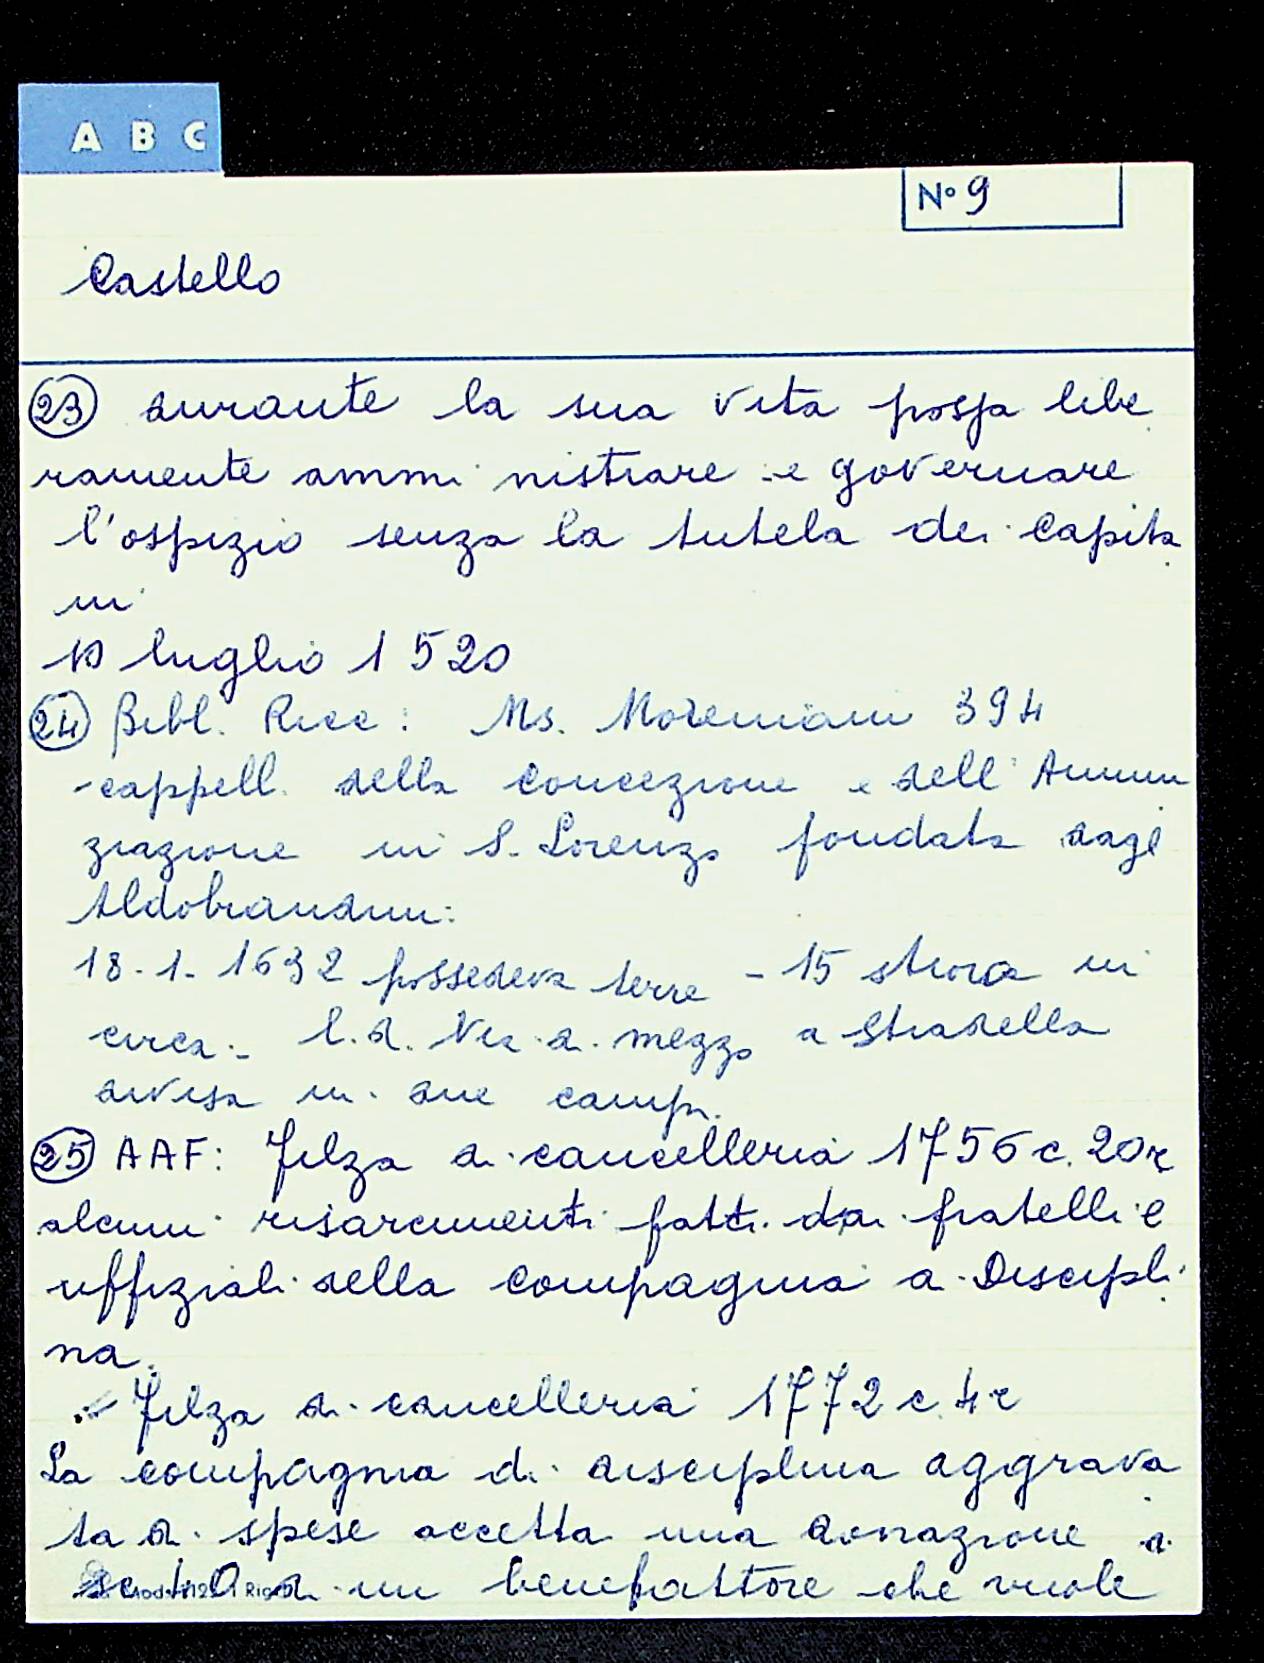 A B C
N° 9
Castello
23 durante la sua vita possa libe
ramente amministrare e governare
l'ospizio senza la tutela dei capita
ni
luglio 1520
24 Bibl. Ricc: Ms. Moreniani 394
-cappell. della concezione e dell'Annun
ziazione in S. Lorenzo fondata dagl
Aldobrandini:
18-1-1632 possedeva terre - 15 stiora in
circa - l.d. Via di mezzo a Stradella
divisa in due campi.
25 AAF: Filza di cancelleria 1756 c. 20r
alcuni risarcimenti fatti dai fratelli e
uffiziali della compagnia di Discipli
na.
Filza di cancelleria 1772 c. 4r
La compagnia di disciplina aggrava
ta di spese accetta una donazione di
di un benefattore che vuole